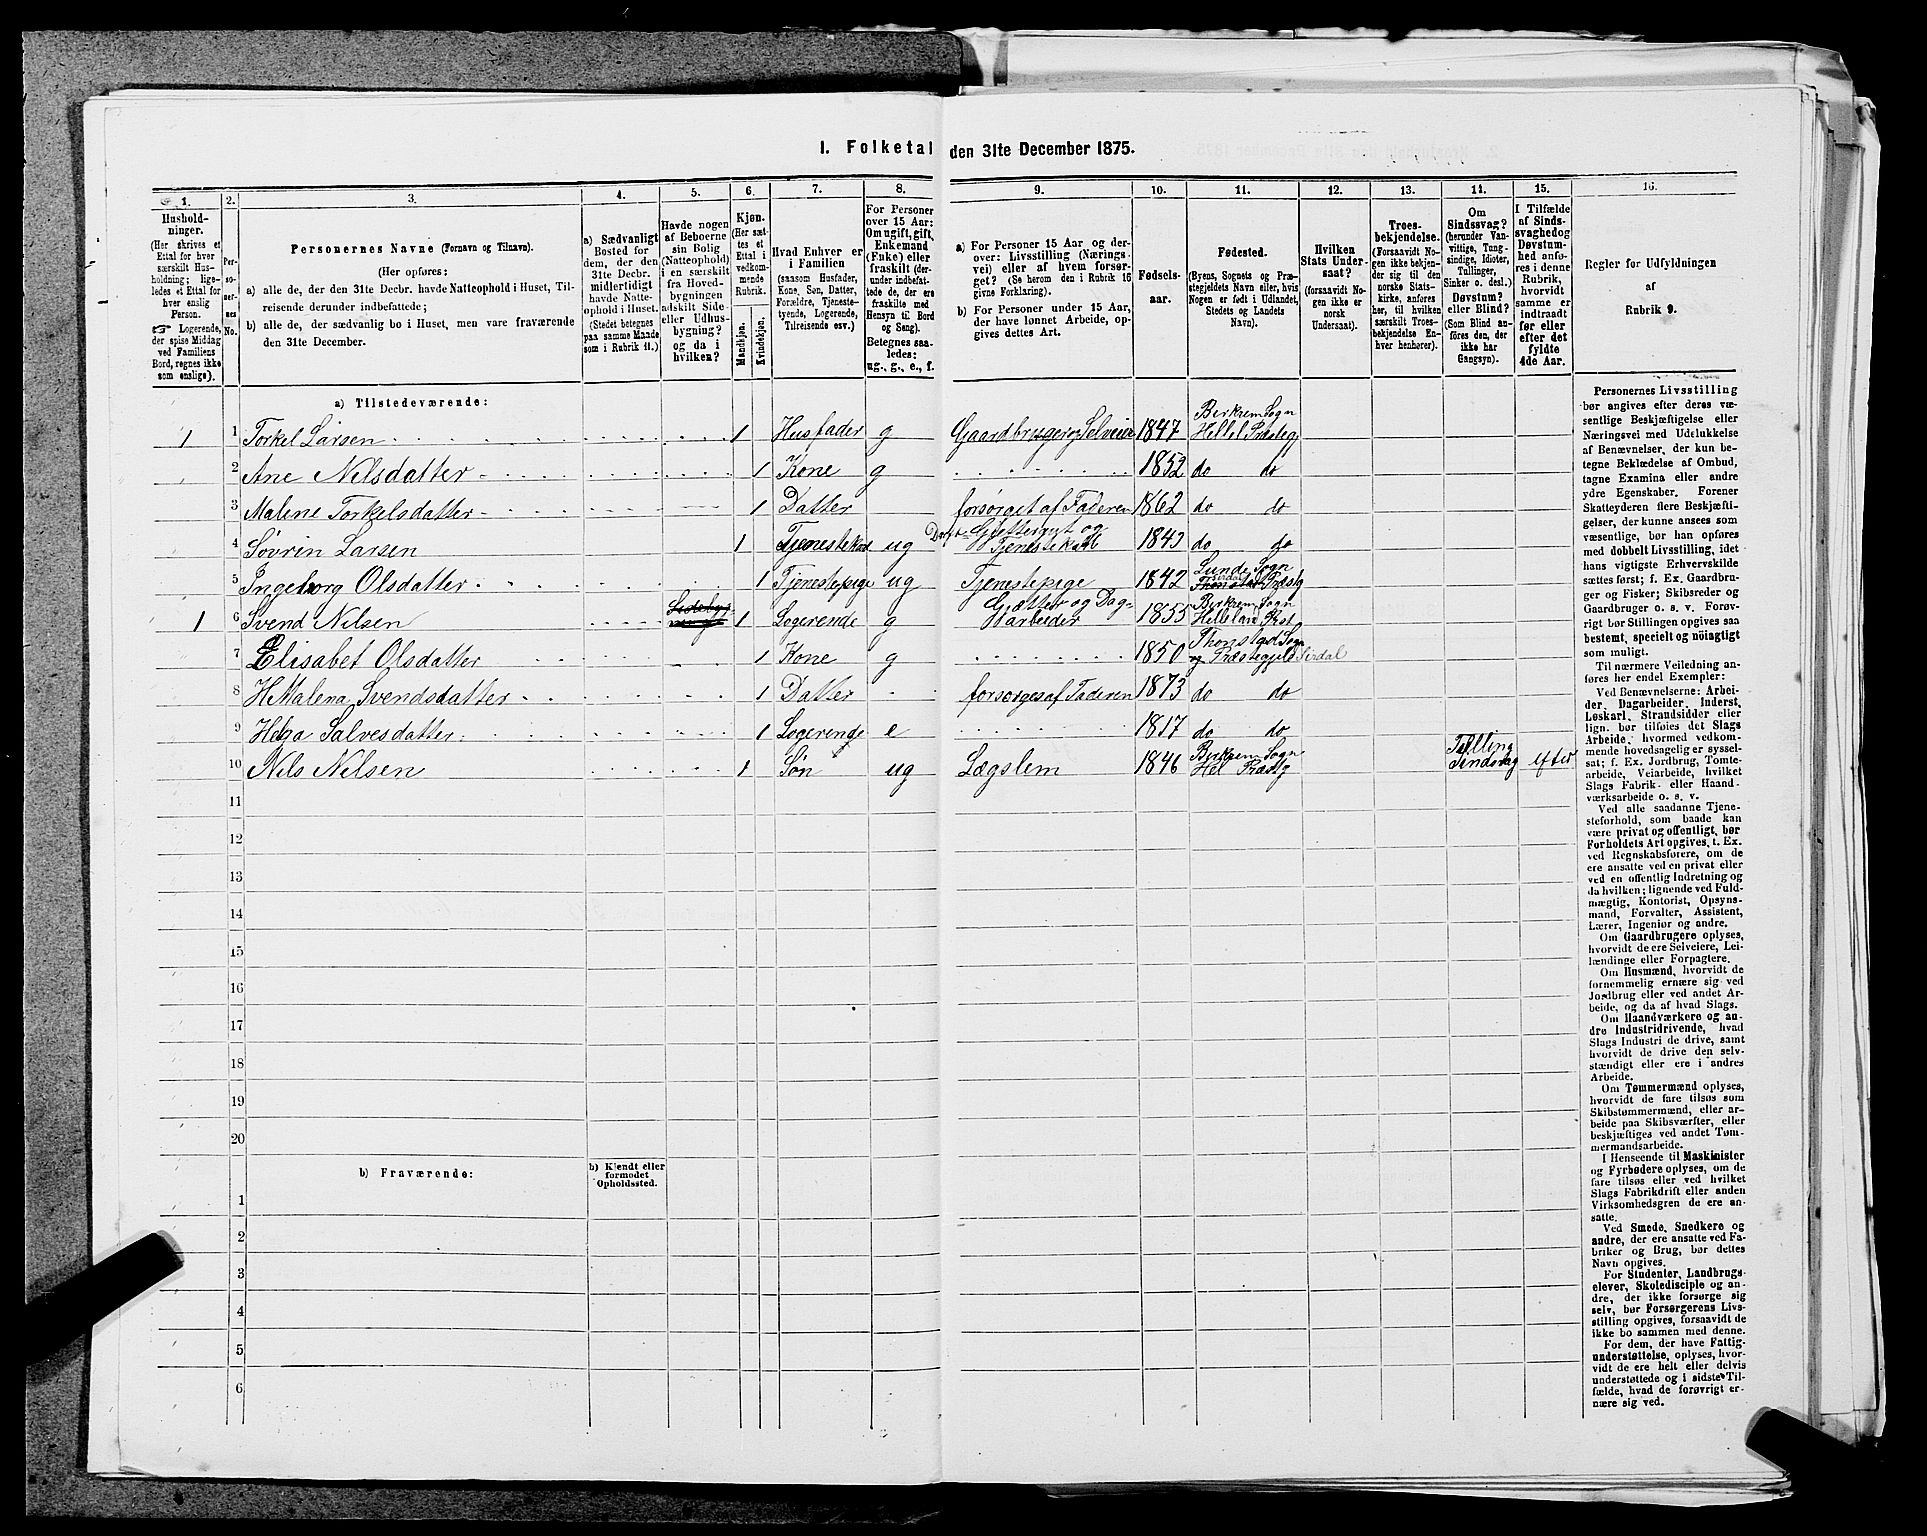 1. Folketal den 31te December 1875.
1. 2. 3. 4. 5. 6. 7. 8. 9. 10. 11. 12. 13. 14. 15. 16.
Hushold-
ninger.
(Her skrives et
Ettal for hver
særskilt Hus-
holdning; lige-
ledes et Ettal for
hver enslig
Person.
☞ Logerende,
der spise Middag
ved Familiens
Bord, regnes ikke
som enslige).
Per-
so-
ner-
nes
No.
Personernes Navne (Fornavn og Tilnavn).
(Her opføres:
a) alle de, der den 31te Decbr. havde Natteophold i Huset, Til-
reisende derunder indbefattede;
b) alle de, der sædvanlig bo i Huset, men vare fraværende
den 31te December.
a) Sædvanligt
Bosted for
dem, der den
31te Decbr.
midlertidigt
havde Natte-
ophold i Huset.
(Stedet betegnes
paa samme Maade
som i Rubrik 11.)
Havde nogen
af Beboerne
sin Bolig
(Natteophold)
i en særskilt
fra Hoved-
bygningen
adskilt Side-
eller Udhus-
bygning?
og da i
hvilken?
Kjøn.
(Her sæt-
tes et
Ettal i
vedkom-
mende
Rubrik.
Mandkjøn.
Kvindekjøn.
Hvad Enhver er
i Familien
(saasom Husfader,
Kone, Søn, Datter,
Forældre, Tjeneste-
tyende, Logerende,
Tilreisende osv.)
For Personer
over 15 Aar:
Om ugift, gift,
Enkemand
(Enke) eller
fraskilt (der-
under indbefat-
tede de, der ere
fraskilte med
Hensyn til Bord
og Seng).
Betegnes saa-
ledes:
ug., g., e., f.
a) For Personer 15 Aar og der-
over: Livsstilling (Nærings-
vei) eller af hvem forsør-
get? (Se herom den i Rubrik 16
givne Forklaring).
b) For Personer under 15 Aar,
der have lønnet Arbeide, op-
gives dettes Art.
Fødsels-
aar.
Fødested.
(Byens, Sognets og Præ-
stegjeldets Navn eller, hvis
Nogen er født i Udlandet,
Stedets og Landets
Navn).
Hvilken
Stats Under-
saat?
(forsaavidt No-
gen ikke er
norsk
Undersaat).
Troes-
bekjendelse.
(Forsaavidt No-
gen ikke beken-
der sig til den
norske Stats-
kirke, anføres
her, til hvilken
særskilt Troes-
bekjendelse En-
hver henhører).
Om
Sindssvag?
(herunder Van-
vittige, Tung-
sindige, Idioter,
Tullinger,
Sinker o. desl.)
Døvstum?
eller Blind?
(Som Blind an-
føres den, der
ikke har
Gangsyn).
I Tilfælde
af Sinds-
svaghed og
Døvstum-
hed anfø-
res i denne
Rubrik,
hvorvidt
samme er
indtraadt
før eller
efter det
fyldte
4de Aar.
Regler for Udfyldningen
af
Rubrik 9.
a) Tilstedeværende:
1 1 Torkel Larsen 1 Husfader g Gaardbruger og Selveier 1847 Birkrem Sogn Hellel Præsteg
2 Ane Nilsdatter 1 Kone g 1852 do do
3 Malene Torkelsdatter 1 Datter forsørget af Faderen 1862 do do
4 Søvrin Larsen 1 Tjenestekarl ug Tjenestekarl 1843 do do
5 Ingeborg Olsdatter 1 Tjenestepige ug Tjenestepige 1842 Lunde Sogn Præstg
1 6 Svend Nilsen 1 Logerende g Gjætter og Dag-arbeider 1855 Birkrem Sogn Helleland Præst
7 Elisabet Olsdatter 1 Kone g 1850 Thonstad Sogn og Præstegjeld Sirdal
8 H Malena Svendsdatter 1 Datter forsorges af Faderen 1873 do do
9 Salvesdatter 1 Logerende e 1817 do do
10 Nils Nilsen 1 Søn ug Lægslem 1846 Birkrem Sogn Hel Præstg Tulling Sindsvag efter
11
12
13
14
15
16
17
18
19
20
b) Fraværende:
b) Kjendt eller
formodet
Opholdssted.
1
2
3
4
5
6
Personernes Livsstilling
bør angives efter deres væ-
sentlige Beskjæftigelse eller
Næringsvei med Udelukkelse
af Benævnelser, der kun be-
tegne Beklædelse af Ombud,
tagne Examina eller andre
ydre Egenskaber. Forener
Skatteyderen flere Beskjæfti-
gelser, der kunne ansees som
væsentlige, bør han opføres
med dobbelt Livsstilling, idet
hans vigtigste Erhvervskilde
sættes først; f. Ex. Gaardbru-
ger og Fisker; Skibsreder og
Gaardbruger o. s. v. Forøv-
rigt bør Stillingen opgives saa
bestemt, specielt og nöiagtigt
som muligt.
Til nærmere Veiledning an-
føres her endel Exempler:
Ved Benævnelserne: Arbei-
der, Dagarbeider, Inderst,
Løskarl, Strandsidder eller
lign. bør tilføies det Slags
Arbeide, hvormed vedkom-
mende hovedsagelig er syssel-
sat; f. Ex. Jordbrug, Tomte-
arbeide, Veiarbeide, hvilket
Slags Fabrik- eller Haand-
værksarbeide o. s. v.
Ved alle saadanne Tjene-
steforhold, som baade kan
være privat og offentligt, bør
Forholdets Art opgives, t. Ex.
ved Regnskabsførere, om de
ere ansatte ved en privat eller
ved en offentlig Indretning og
da hvilken; lignende ved Fuld-
mægtig, Kontorist, Opsyns-
mand, Forvalter, Assistent,
Lærer, Ingeniør og andre.
Om Gaardbrugere oplyses,
hvorvidt de ere Selveiere, Lei-
lændinge eller Forpagtere.
Om Husmænd, hvorvidt de
fornemmelig ernære sig ved
Jordbrug eller ved andet Ar-
beide, og da af hvad Slags.
Om Haandværkere og an-
dre Industridrivende, hvad
Slags Industri de drive, samt
hvorvidt de drive den selv-
stændigt eller ere i andres
Arbeide.
Om Tømmermænd oplyses,
hvorvidt de fare tilsøs som
Skibstømmermænd, eller ar-
beide paa Skibsværfter, eller
beskjæftiges ved andet Tøm-
mermandsarbeide.
I Henseende til Maskinister
og Fyrbødere oplyses, om de
fare tilsøs eller ved hvilket
Slags Fabrikdrift eller anden
Virksomhedsgren de ere an-
satte.
Ved Smede, Snedkere og
andre, der ere ansatte ved Fa-
briker og Brug, bør dettes
Navn opgives.
For Studenter, Landbrugs-
elever, Skoledisciple og an-
dre, der ikke forsørge sig
selv, bør Forsørgerens Livs-
stilling opgives, forsaavidt de
ikke bo sammen med denne.
For dem, der have Fattig-
understøttelse, oplyses, hvor-
vidt de ere helt eller delvis
understøttede og i sidste Til-
fælde, hvad de forøvrigt er-
nære sig ved.